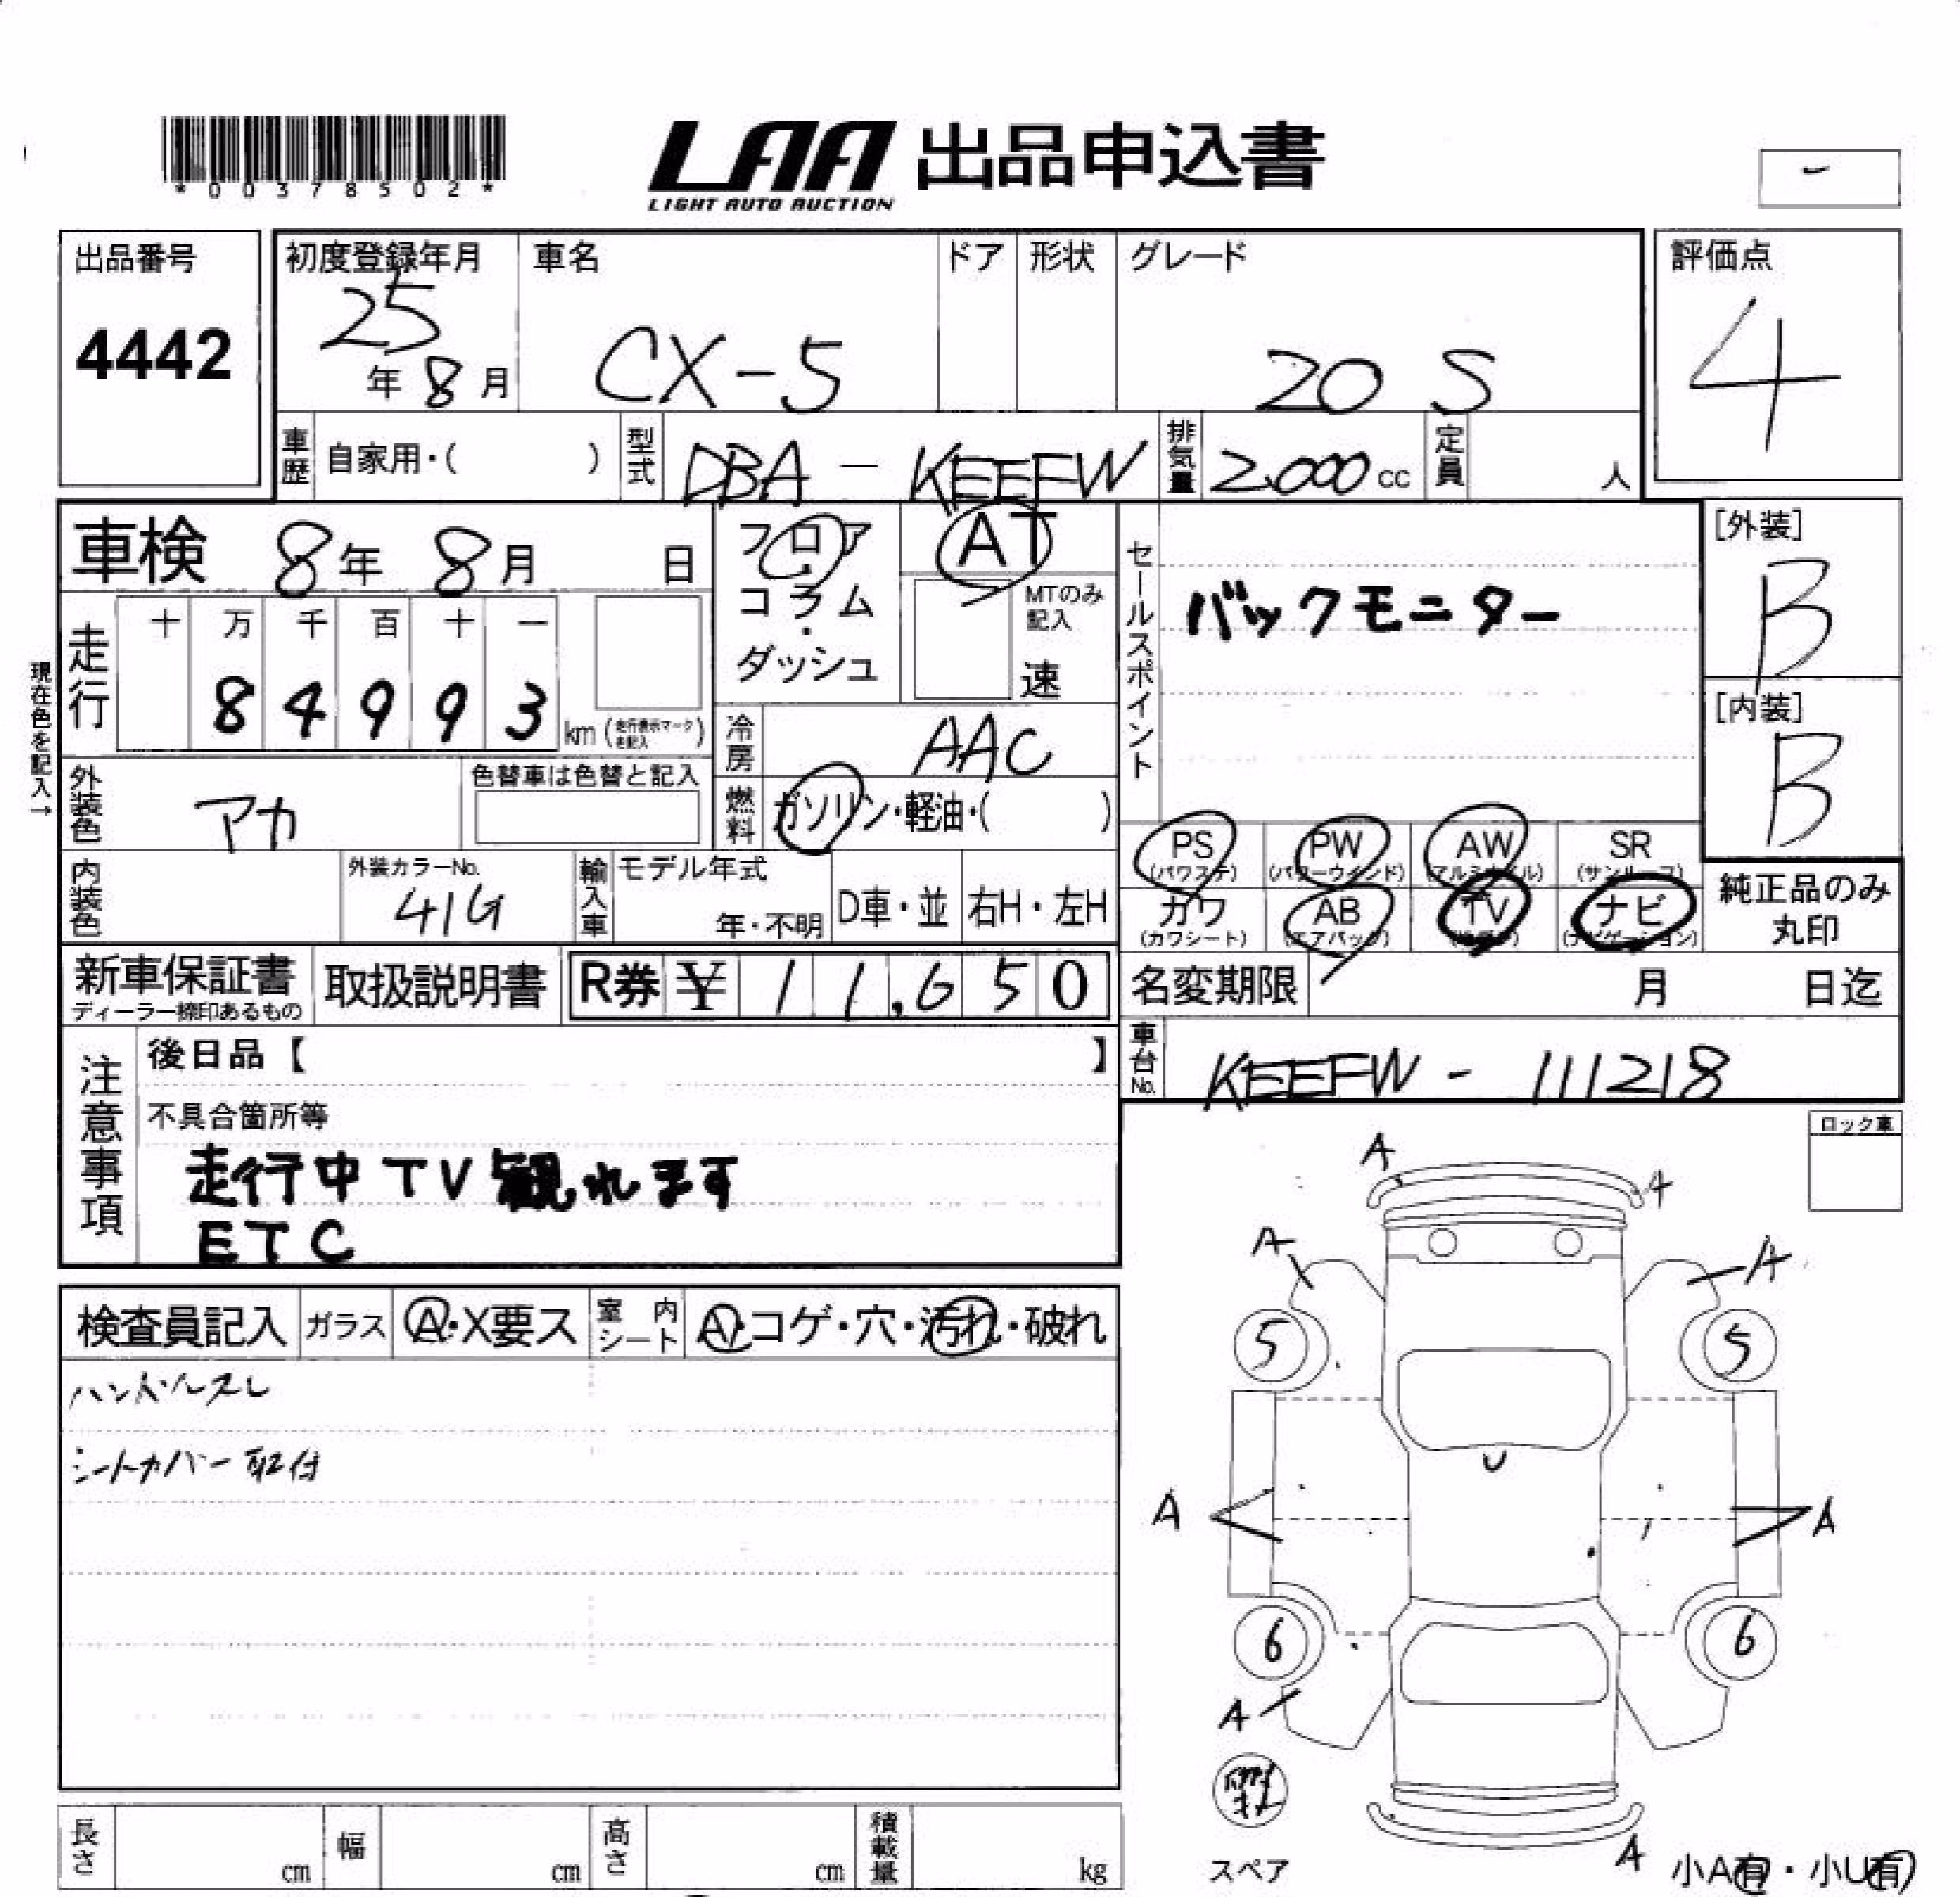 *00378502*
LAA 出品申込書
LIGHT AUTO AUCTION
-
出品番号
4442
初度登録年月
25年8月
車名
CX-5
ドア
形状
グレード
20 S
評価点
4
車歴 自家用・( )
型式 DBA - KEEFW
排気量 2000 cc
定員 人
車検 8年 8月 日
フロア・コラム・ダッシュ
AT
MTのみ記入
速
セールスポイント
バックモニター
[外装]
B
[内装]
B
現在色を記入→
走行
十 万 千 百 十 一
8 4 9 9 3 km (走行表示マークを記入)
冷房 AAC
燃料 ガソリン・軽油・( )
外装色 アカ
色替車は色替と記入
内装色
外装カラーNo.
41G
輸入車
モデル年式
年・不明
D車・並
右H・左H
PS (パワステ)
PW (パワーウインド)
AW (アルミホイル)
SR (サンルーフ)
カワ (カワシート)
AB (エアバック)
TV (テレビ)
ナビ (ナビゲーション)
純正品のみ丸印
新車保証書
ディーラー捺印あるもの
取扱説明書
R券 ¥ 11,650
名変期限 月 日迄
車台No. KEEFW - 111218
注意事項
後日品【 】
不具合箇所等
走行中TV観れます
ETC
ロック車
検査員記入
ガラス A・X要ス
室内シート A・コゲ・穴・汚れ・破れ
ハンドルスレ
シートカバー取付
A
A
A
A
5
5
U
A
A
6
6
A
スペア
A
小A有・小U有
長さ cm
幅 cm
高さ cm
積載量 kg